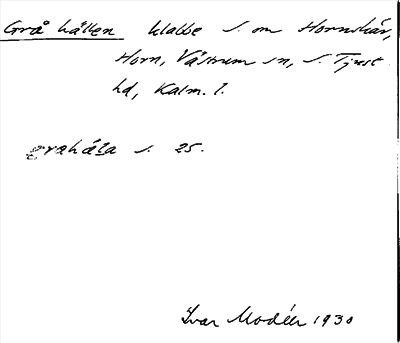 Grå hällen klabbe S. om Hornskär,
Horn, Västrum sn, S. Tjust
hd, Kalm. l.
grahäla s. 25.
Ivar Modéer 1930